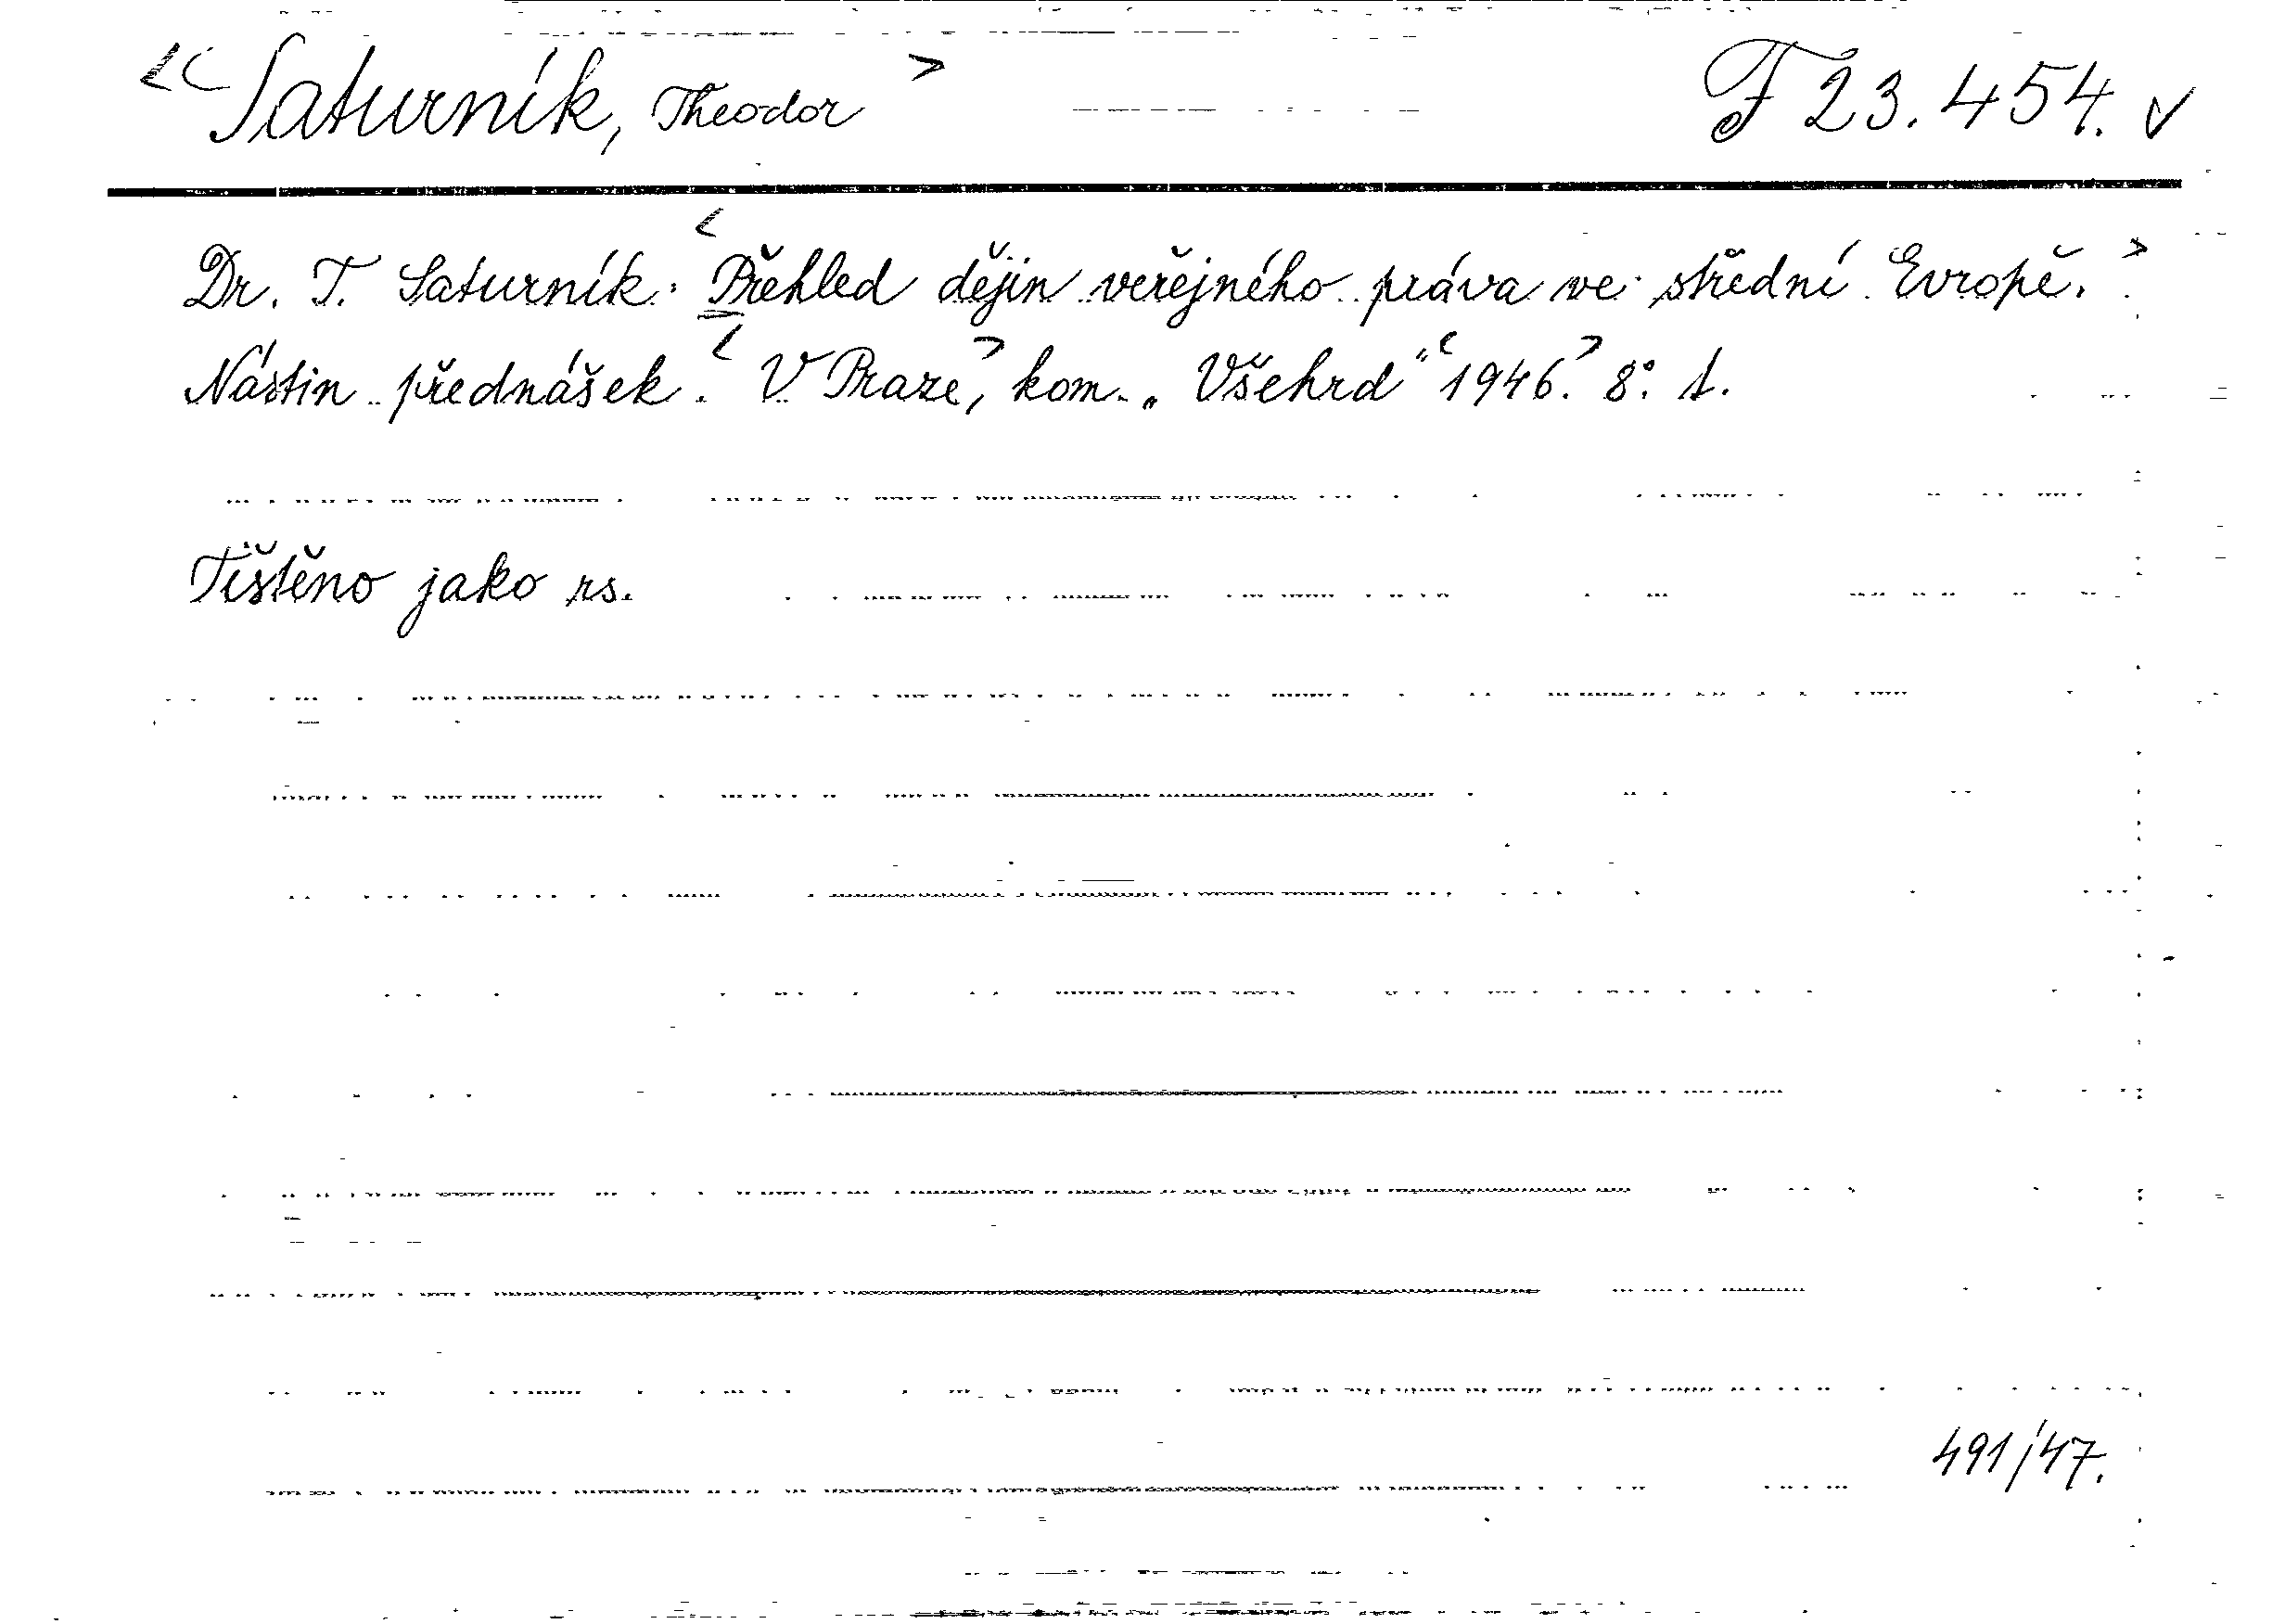 <Saturník, Theodor> F 23.454. v
Dr. T. Saturník: <Přehled dějin veřejného práva ve střední Evropě.>
Nástin přednášek. <V Praze>, kom. „Všehrd“ <1946.> 8°. 1.
Tištěno jako rs.
491/47.